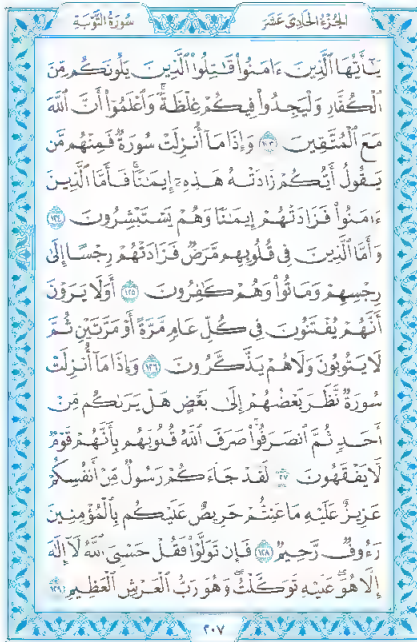 الجزء الحادى عشر سورة التوبة
يَٰٓأَيُّهَا ٱلَّذِينَ ءَامَنُوا۟ قَٰتِلُوا۟ ٱلَّذِينَ يَلُونَكُم مِّنَ
ٱلْكُفَّارِ وَلْيَجِدُوا۟ فِيكُمْ غِلْظَةً ۚ وَٱعْلَمُوٓا۟ أَنَّ ٱللَّهَ
مَعَ ٱلْمُتَّقِينَ ١٢٣ وَإِذَا مَآ أُنزِلَتْ سُورَةٌ فَمِنْهُم مَّن
يَقُولُ أَيُّكُمْ زَادَتْهُ هَٰذِهِۦٓ إِيمَٰنًا ۚ فَأَمَّا ٱلَّذِينَ
ءَامَنُوا۟ فَزَادَتْهُمْ إِيمَٰنًا وَهُمْ يَسْتَبْشِرُونَ ١٢٤
وَأَمَّا ٱلَّذِينَ فِى قُلُوبِهِم مَّرَضٌ فَزَادَتْهُمْ رِجْسًا إِلَىٰ
رِجْسِهِمْ وَمَاتُوا۟ وَهُمْ كَٰفِرُونَ ١٢٥ أَوَلَا يَرَوْنَ
أَنَّهُمْ يُفْتَنُونَ فِى كُلِّ عَامٍ مَّرَّةً أَوْ مَرَّتَيْنِ ثُمَّ
لَا يَتُوبُونَ وَلَا هُمْ يَذَّكَّرُونَ ١٢٦ وَإِذَا مَآ أُنزِلَتْ
سُورَةٌ نَّظَرَ بَعْضُهُمْ إِلَىٰ بَعْضٍ هَلْ يَرَىٰكُم مِّنْ
أَحَدٍ ثُمَّ ٱنصَرَفُوا۟ ۚ صَرَفَ ٱللَّهُ قُلُوبَهُم بِأَنَّهُمْ قَوْمٌ
لَّا يَفْقَهُونَ ١٢٧ لَقَدْ جَآءَكُمْ رَسُولٌ مِّنْ أَنفُسِكُمْ
عَزِيزٌ عَلَيْهِ مَا عَنِتُّمْ حَرِيصٌ عَلَيْكُم بِٱلْمُؤْمِنِينَ
رَءُوفٌ رَّحِيمٌ ١٢٨ فَإِن تَوَلَّوْا۟ فَقُلْ حَسْبِىَ ٱللَّهُ لَآ إِلَٰهَ
إِلَّا هُوَ ۖ عَلَيْهِ تَوَكَّلْتُ ۖ وَهُوَ رَبُّ ٱلْعَرْشِ ٱلْعَظِيمِ ١٢٩
٢٠٧